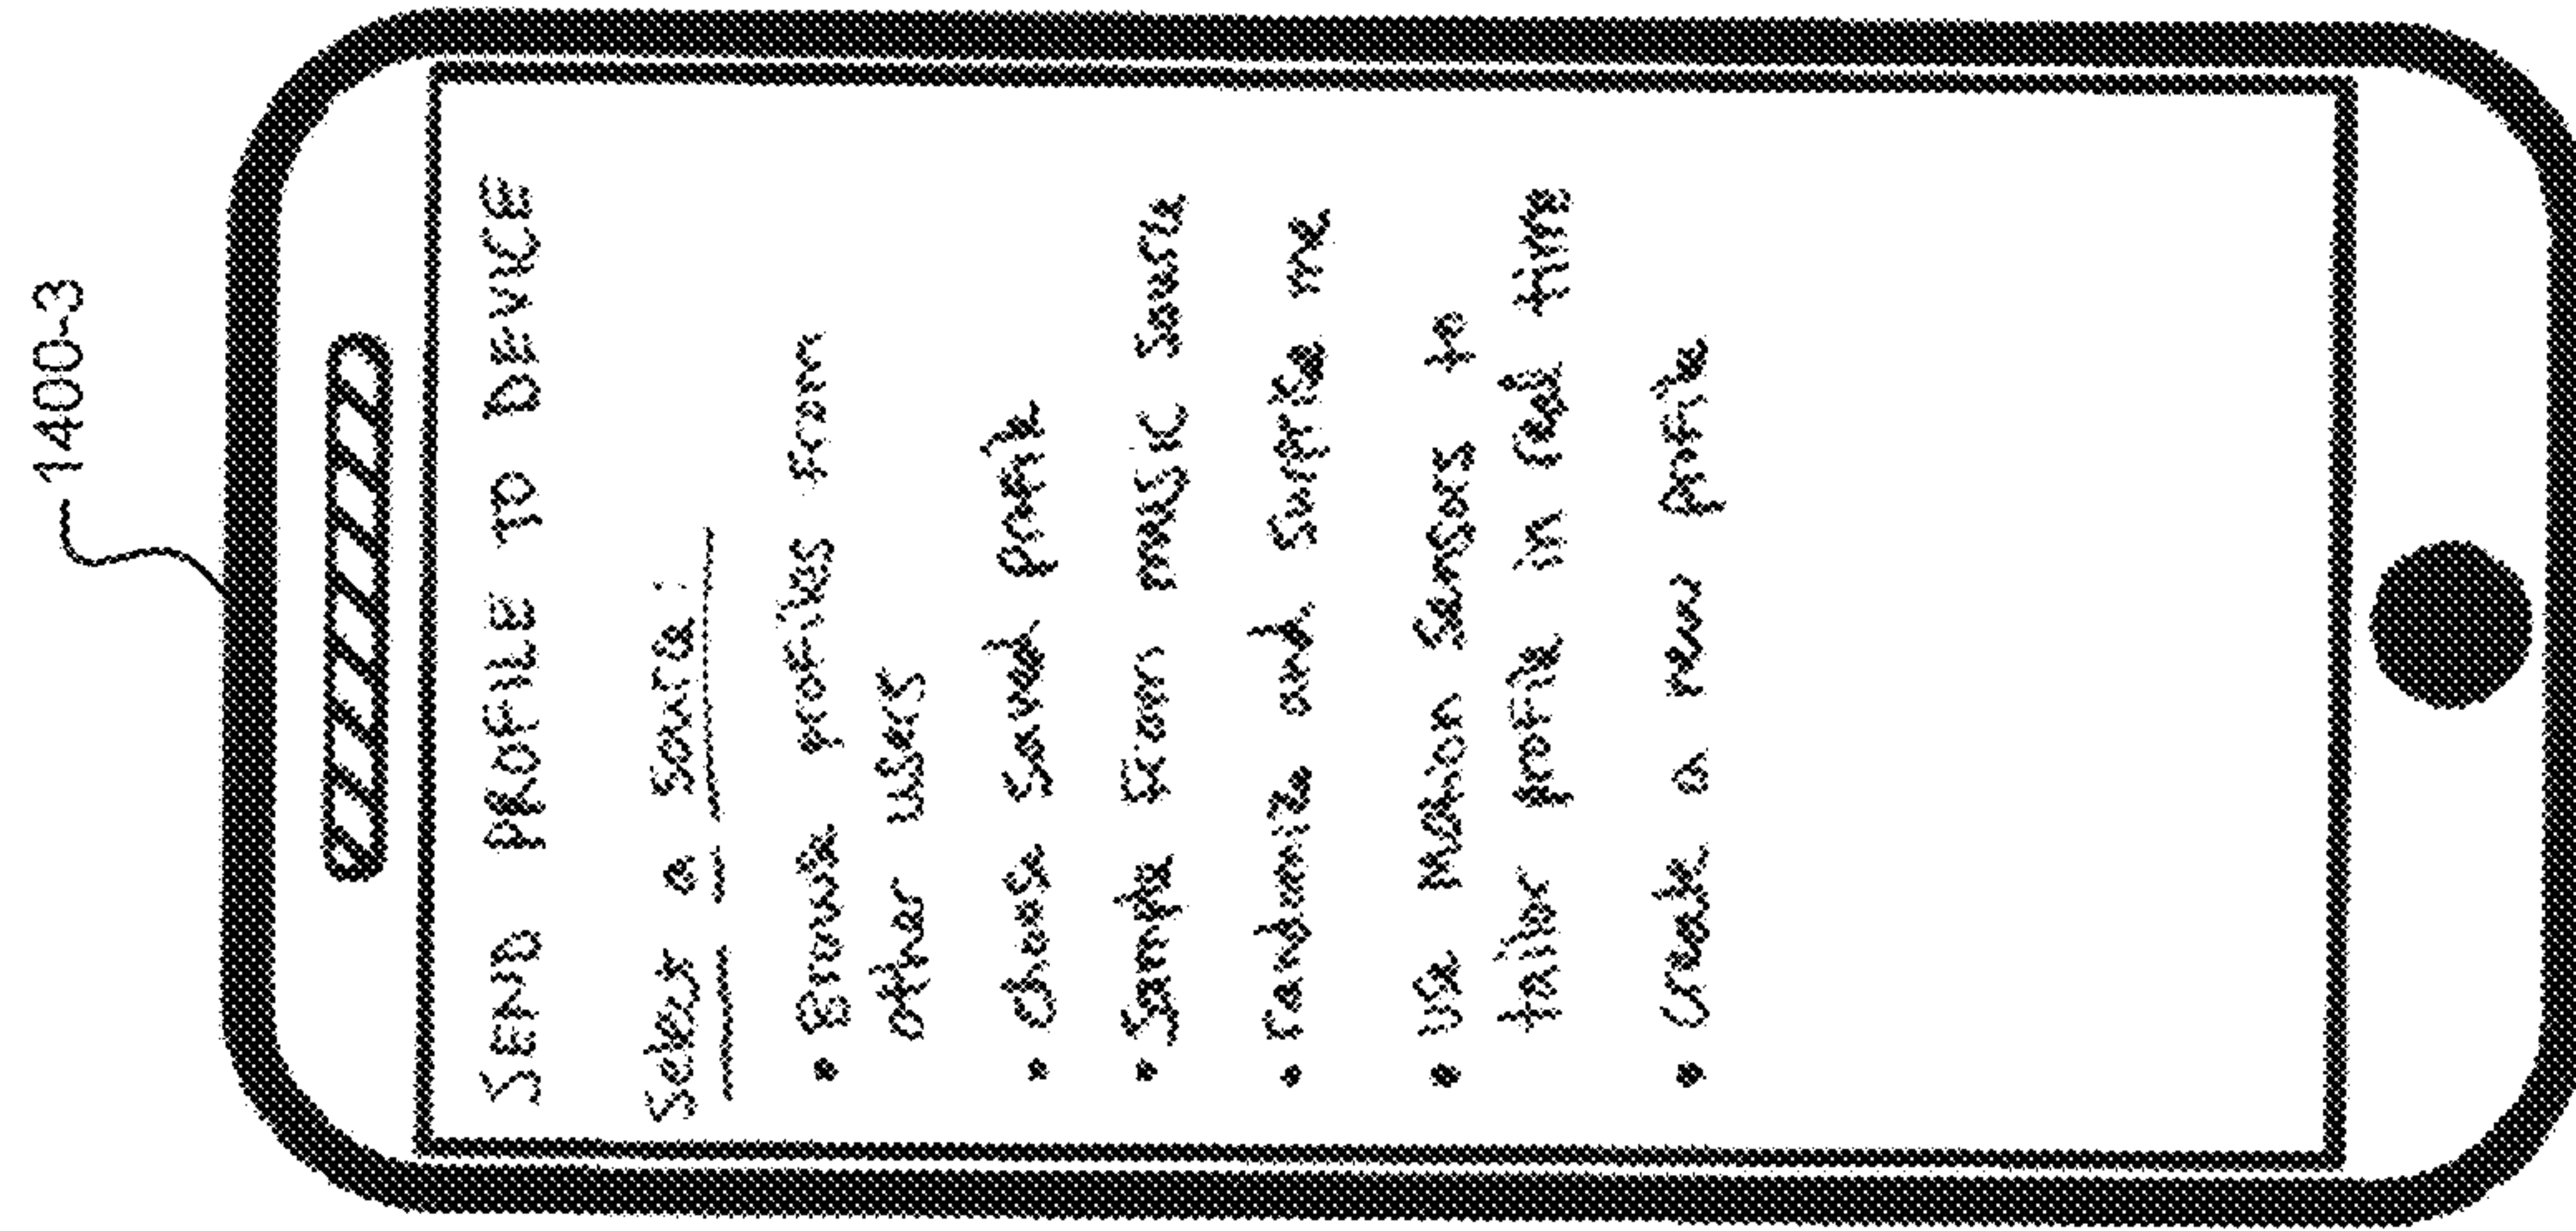 1400-3
SEND PROFILE TO DEVICE
Select a source:
• Browse profiles from
other users
• choose saved profile
• Sample from music source
• randomize and surprise me
• use motion sensors to
tailor profile in real time
• Create a new profile